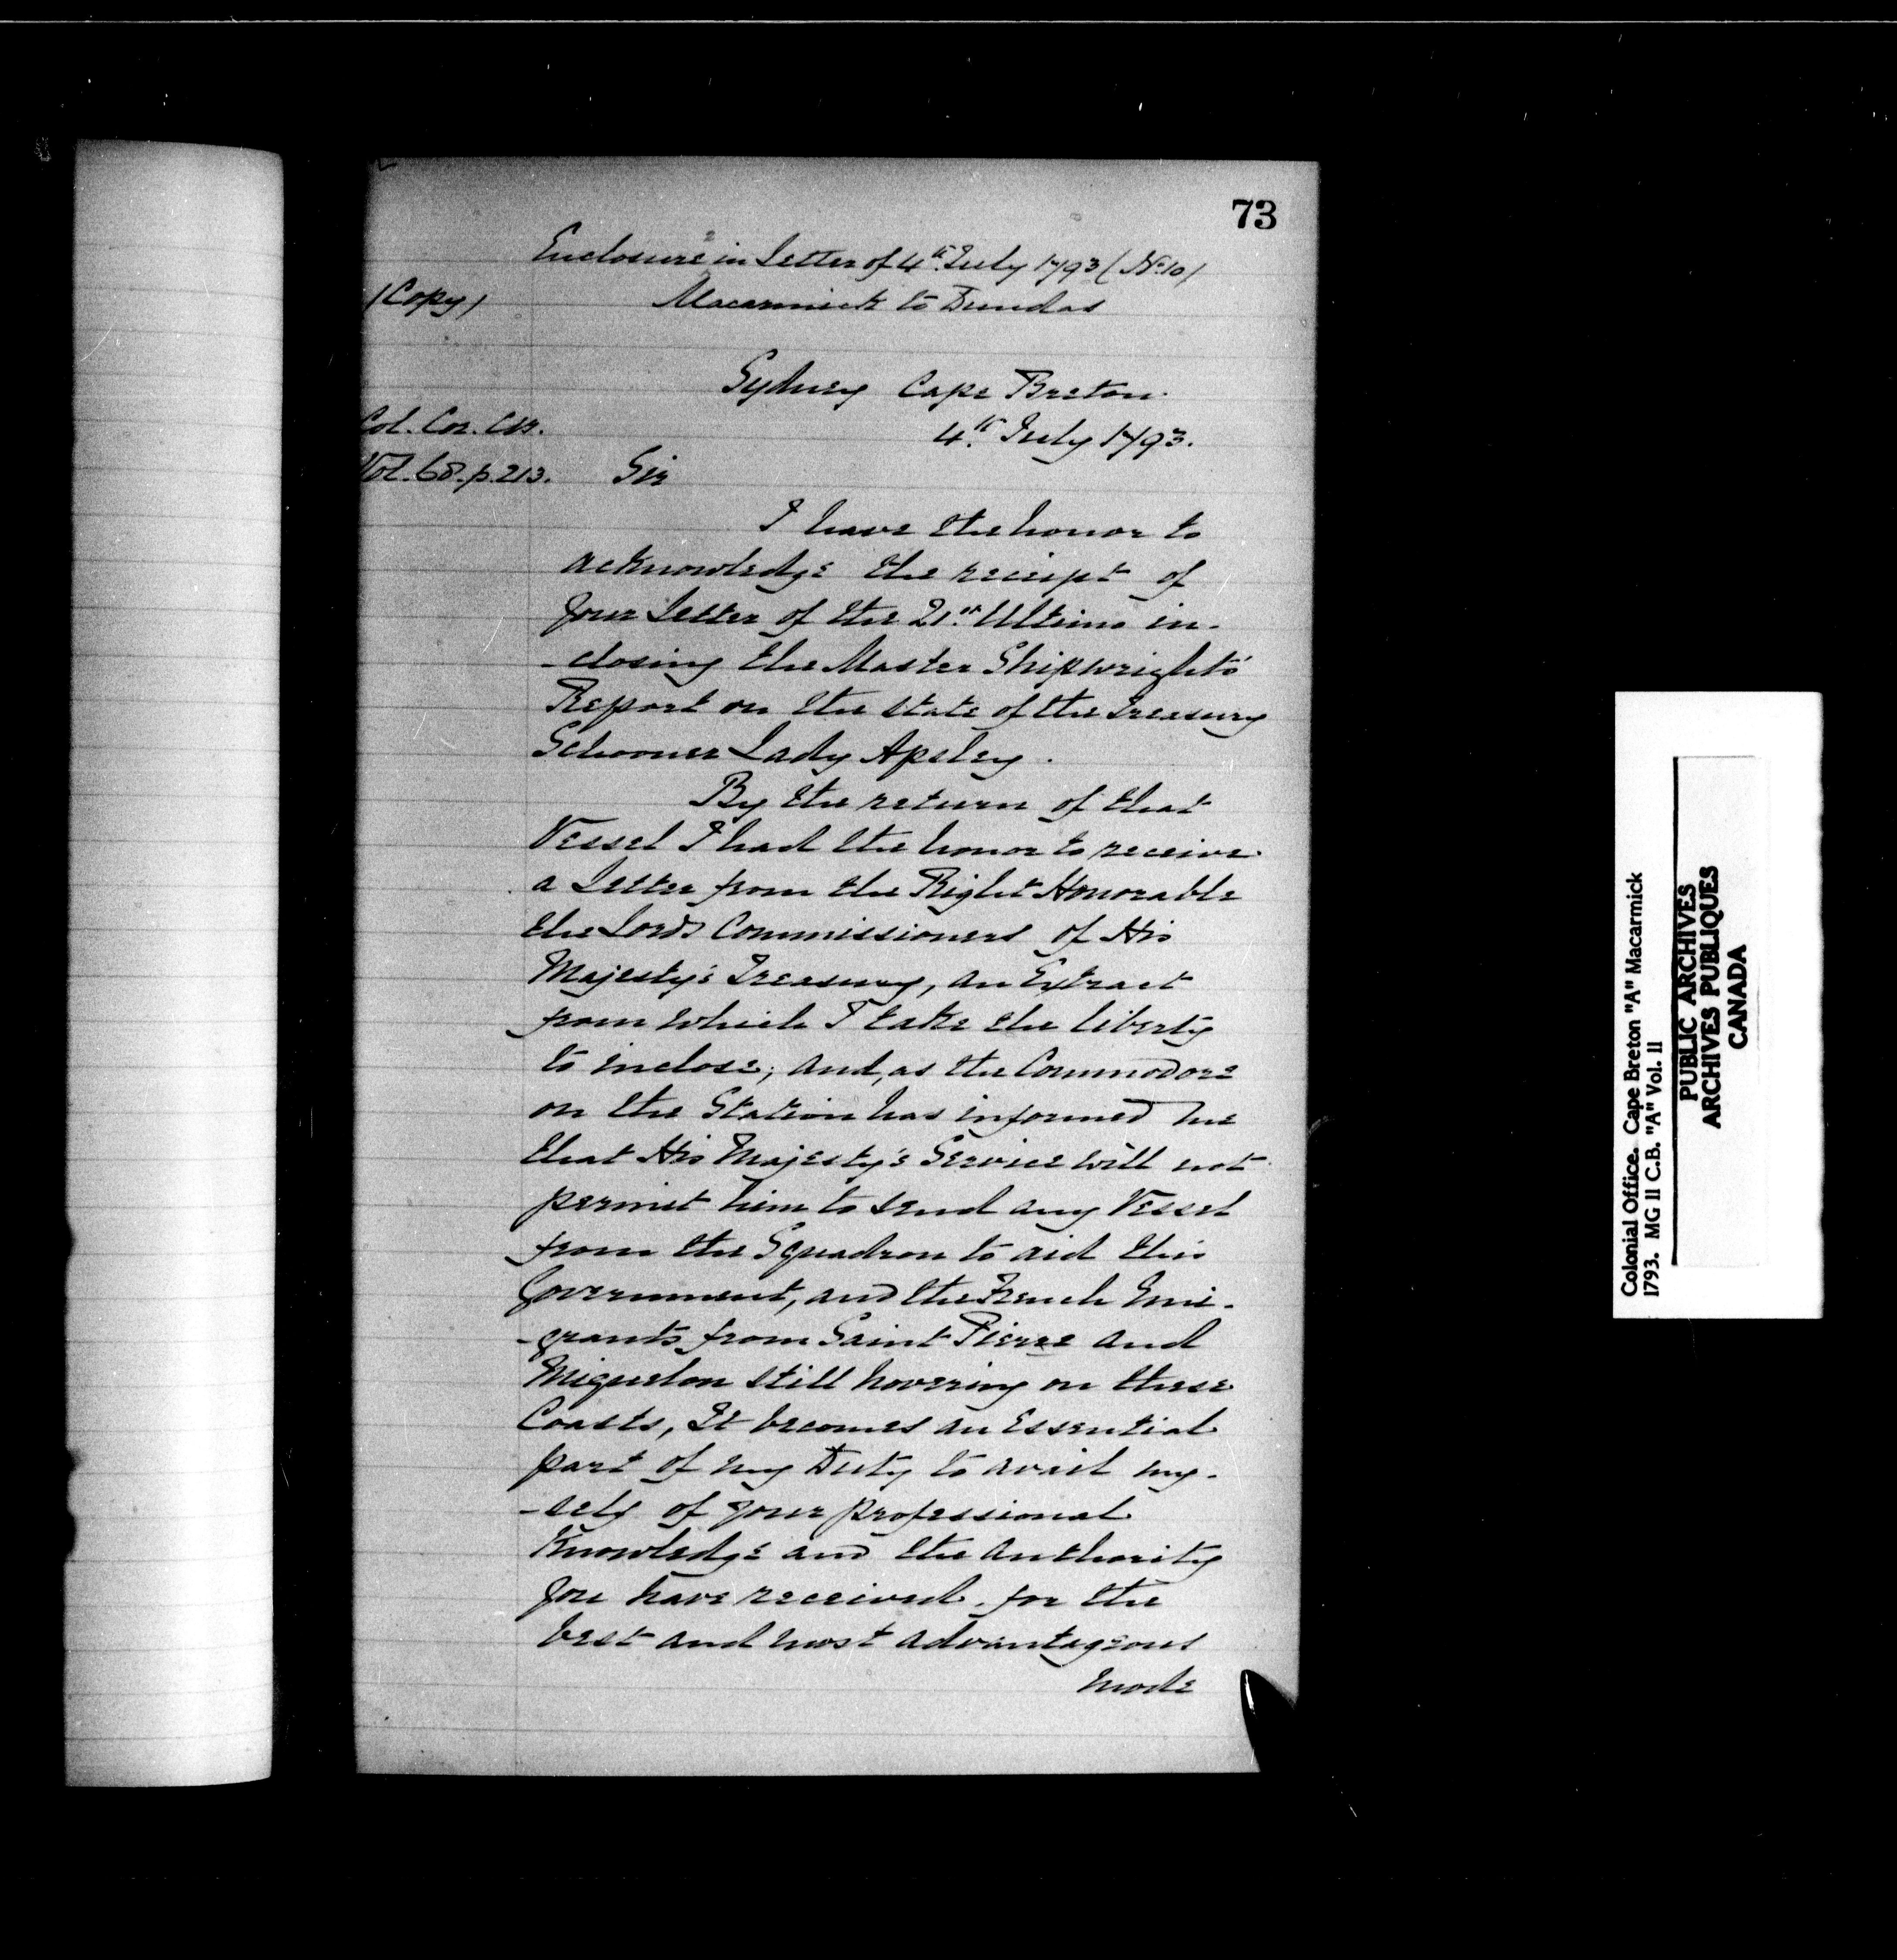 73
Enclosure 2 in Letter of 4th July 1793 (No 10)
(Copy) Macarmick to Dundas
Sydney Cape Breton.
4th July 1793.
Col. Cor. C.B.
Vol. 68. p. 213.
Sir
I have the honor to
acknowledge the receipt of
your Letter of the 21st Ultimo in-
-closing the Master Shipwright's
Report on the state of the Treasury
Schooner Lady Apsley.
By the return of that
Vessel I had the honor to receive
a Letter from the Right Honorable
the Lords Commissioners of His
Majesty's Treasury, an Extract
from which I take the liberty
to inclose; and, as the Commodore
on the Station has informed me
that His Majesty's Service will not
permit him to send any Vessel
from the Squadron to aid this
Government, and the French Emi-
-grants from Saint Pierre and
Miquelon still hovering on these
Coasts, It becomes an Essential
part of my Duty to avail my-
-self of your professional
Knowledge and the authority
you have received, for the
best and most advantageous
mode
Colonial Office. Cape Breton "A" Macarmick
1793. MG 11 C.B. "A" Vol. 11
PUBLIC ARCHIVES
ARCHIVES PUBLIQUES
CANADA